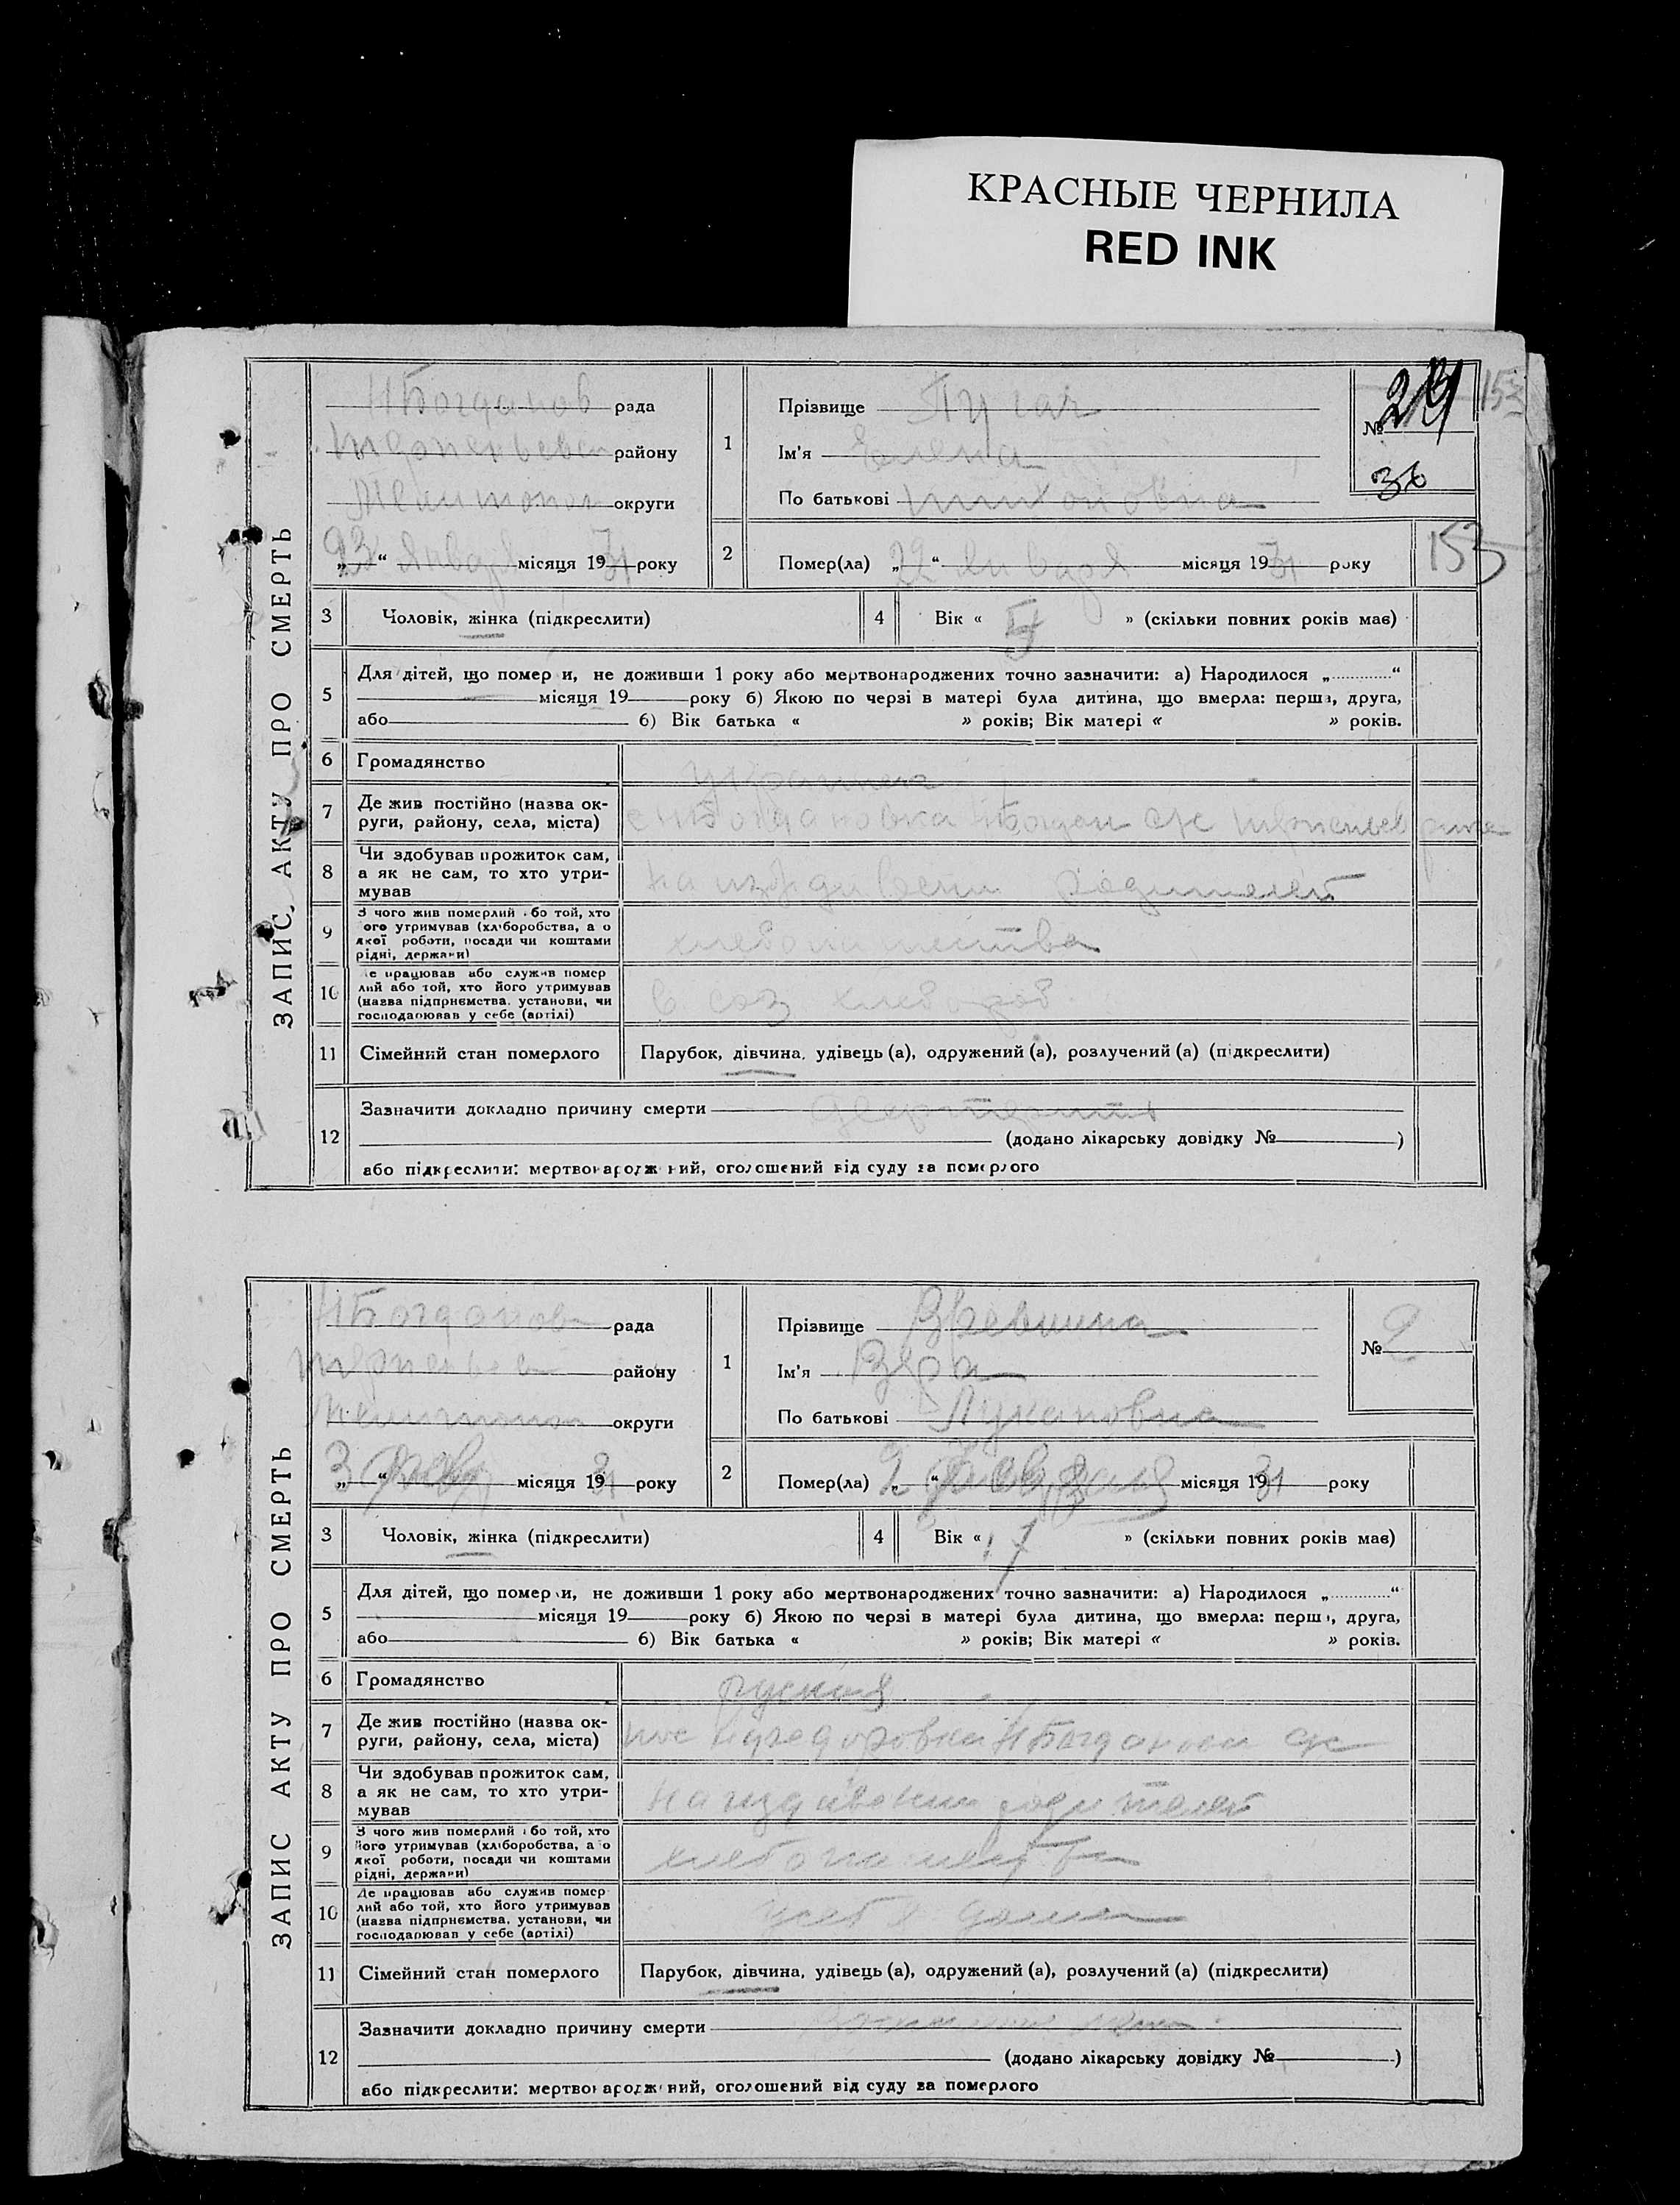 КРАСНЫЕ ЧЕРНИЛА
RED INK
ЗАПИС АКТУ ПРО СМЕРТЬ
НБогданов рада
району
Мелитопол округи
„23“ Января місяця 1931 року
1
Прізвище Пугач
Ім'я Елена
По батькові Тихоновна
№
36
153
2
Помер(ла) „22“ Января місяця 1931 року
153
3 Чоловік, жінка (підкреслити)
4 Вік « 5 » (скільки повних років має)
5 Для дітей, що помер и, не доживши 1 року або мертвонароджених точно зазначити: а) Народилося „............“
місяця 19 року б) Якою по черзі в матері була дитина, що вмерла: перша, друга,
або б) Вік батька « » років; Вік матері « » років.
6 Громадянство украинка
7 Де жив постійно (назва ок-
руги, району, села, міста)
с НБогдановка НБогдан с/с
8 Чи здобував прожиток сам,
а як не сам, то хто утри-
мував
родителей
9 З чого жив померлий або той, хто
ого утримував (хліборобства, а о
якої роботи, посади чи коштами
рідні, держави)
хлебопашества
10 Де працював або служив помер
лий або той, хто його утримував
(назва підприємства, установи, чи
господарював у себе (артілі)
в соз хлебороб
11 Сімейний стан померлого Парубок, дівчина, удівець (а), одружений (а), розлучений (а) (підкреслити)
12 Зазначити докладно причину смерти
(додано лікарську довідку № )
або підкреслити: мертвонароджений, оголошений від суду за померлого
ЗАПИС АКТУ ПРО СМЕРТЬ
НБогданов рада
району
Мелитопол округи
„3“ февр місяця 1931 року
1
Прізвище
Ім'я Вера
По батькові
№ 2
2
Помер(ла) „2“ февраля місяця 1931 року
3 Чоловік, жінка (підкреслити)
4 Вік « 17 » (скільки повних років має)
5 Для дітей, що помер и, не доживши 1 року або мертвонароджених точно зазначити: а) Народилося „............“
місяця 19 року б) Якою по черзі в матері була дитина, що вмерла: перш , друга,
або б) Вік батька « » років; Вік матері « » років.
6 Громадянство руская
7 Де жив постійно (назва ок-
руги, району, села, міста)
пос НБогданов с/с
8 Чи здобував прожиток сам,
а як не сам, то хто утри-
мував
на издивении родителей
9 З чого жив померлий або той, хто
його утримував (хліборобства, а о
якої роботи, посади чи коштами
рідні, держави)
хлебопашества
10 Де працював або служив помер
лий або той, хто його утримував
(назва підприємства, установи, чи
господарював у себе (артілі)
усебя дома
11 Сімейний стан померлого Парубок, дівчина, удівець (а), одружений (а), розлучений (а) (підкреслити)
12 Зазначити докладно причину смерти
(додано лікарську довідку № )
або підкреслити: мертвонароджений, оголошений від суду за померлого